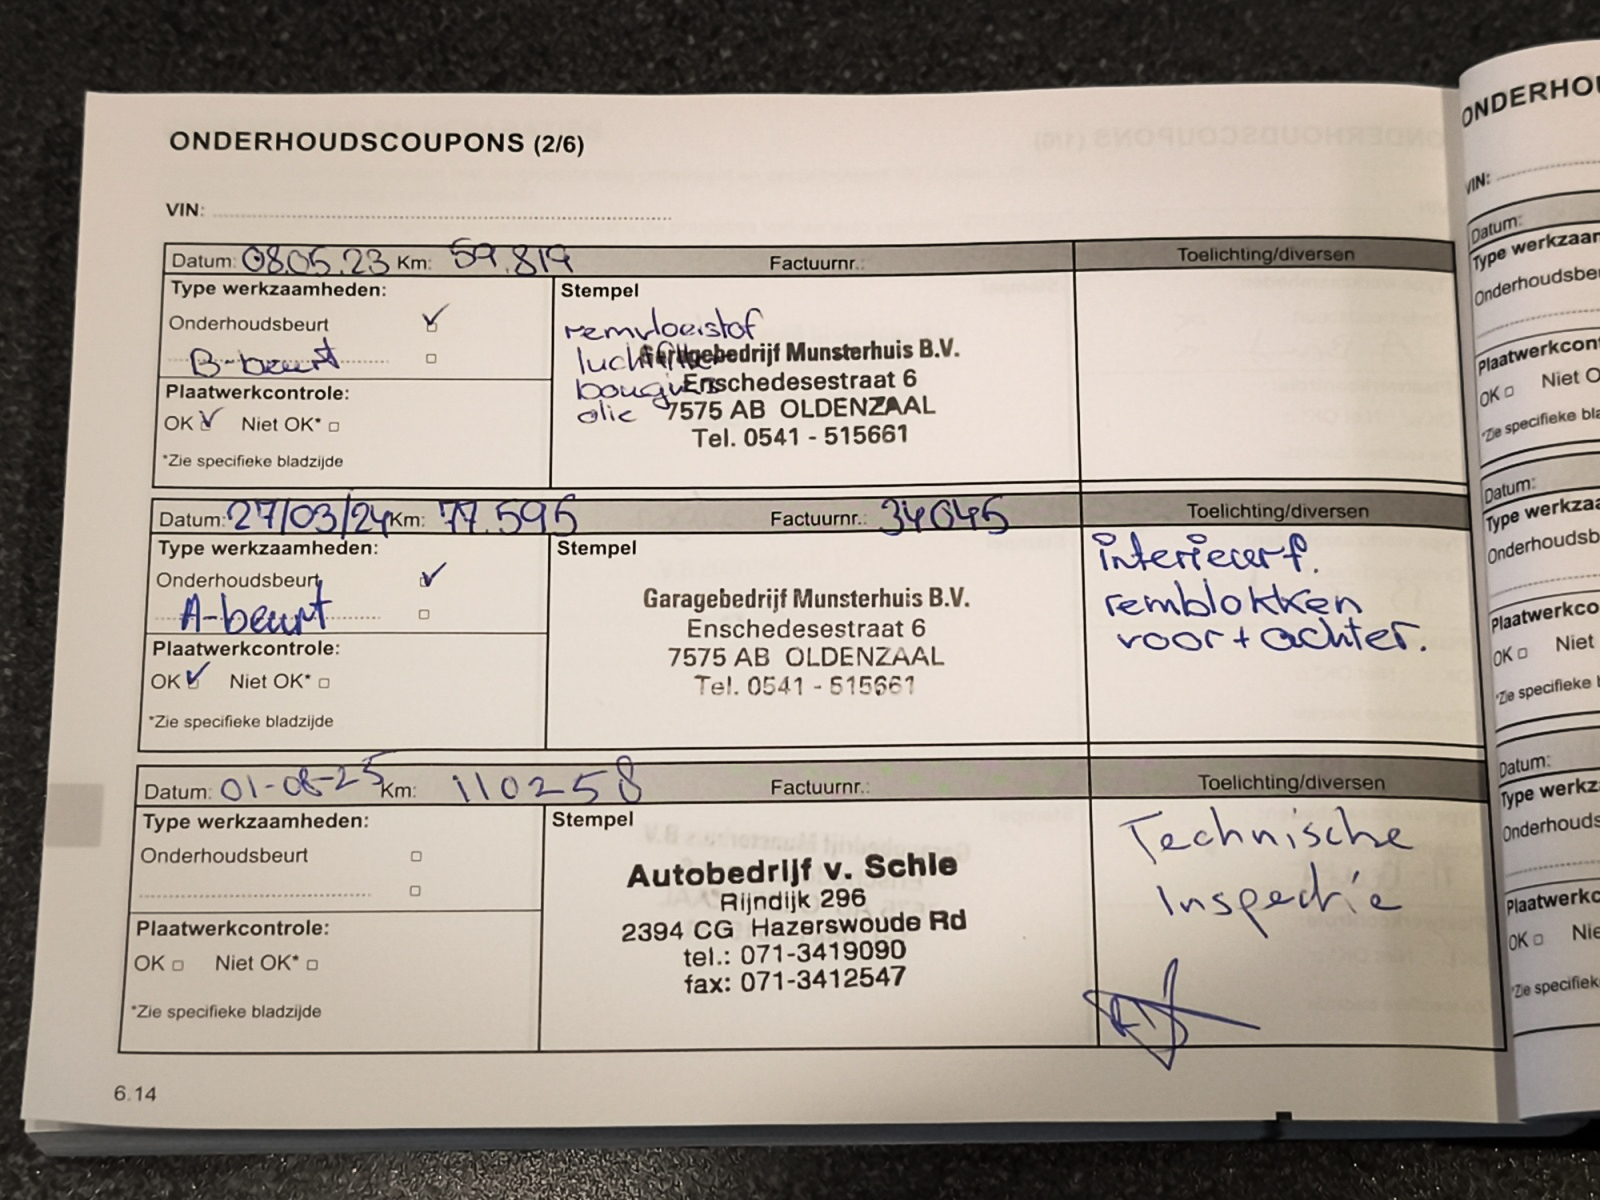 ONDERHOUDSCOUPONS (2/6)
VIN:
Datum: 08.05.23 Km: 59.819 Factuurnr.: Toelichting/diversen
Type werkzaamheden:
Onderhoudsbeurt
B-beurt
Plaatwerkcontrole:
OK Niet OK*
*Zie specifieke bladzijde
Stempel
remvloeistof
luchtfilter
bougies
olie
Garagebedrijf Munsterhuis B.V.
Enschedesestraat 6
7575 AB OLDENZAAL
Tel. 0541 - 515661
Datum: 27/03/24 Km: 77.596 Factuurnr.: 34645 Toelichting/diversen
Type werkzaamheden:
Onderhoudsbeurt
A-beurt
Plaatwerkcontrole:
OK Niet OK*
*Zie specifieke bladzijde
Stempel
Garagebedrijf Munsterhuis B.V.
Enschedesestraat 6
7575 AB OLDENZAAL
Tel. 0541 - 515661
interieurf.
remblokken
voor + achter.
Datum: 01-08-25 Km: 110258 Factuurnr.: Toelichting/diversen
Type werkzaamheden:
Onderhoudsbeurt
Plaatwerkcontrole:
OK Niet OK*
*Zie specifieke bladzijde
Stempel
Autobedrijf v. Schie
Rijndijk 296
2394 CG Hazerswoude Rd
tel.: 071-3419090
fax: 071-3412547
Technische
Inspectie
6.14
ONDERHOU
VIN:
Datum:
Type werkzaam
Onderhoudsbe
Plaatwerkcont
OK Niet O
*Zie specifieke bla
Datum:
Type werkzaa
Onderhoudsb
Plaatwerkco
OK Niet
*Zie specifieke b
Datum:
Type werkz
Onderhouds
Plaatwerkc
OK Nie
*Zie specifiek